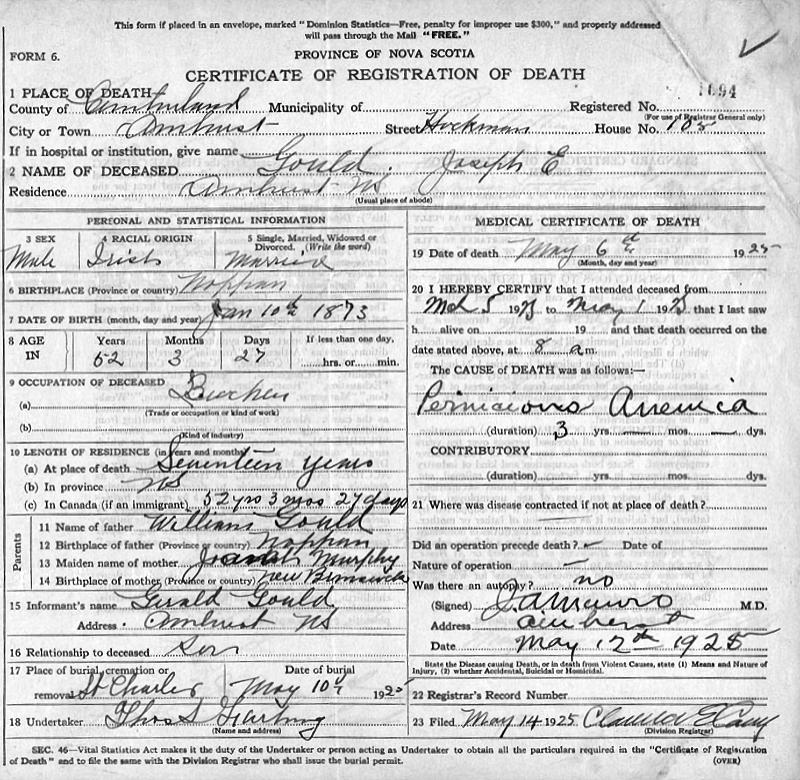 This form if placed in an envelope, marked "Dominion Statistics—Free, penalty for improper use $300," and properly addressed
will pass through the Mail "FREE."
FORM 6.
PROVINCE OF NOVA SCOTIA
CERTIFICATE OF REGISTRATION OF DEATH
1 PLACE OF DEATH
1694
County of Cumberland Municipality of Registered No.
(For use of Registrar General only)
City or Town Amherst Street Hickman House No. 105
If in hospital or institution, give name
2 NAME OF DECEASED Gould. Joseph E
Residence Amherst NS
(Usual place of abode)
PERSONAL AND STATISTICAL INFORMATION
3 SEX 4 RACIAL ORIGIN 5 Single, Married, Widowed or Divorced. (Write the word)
Male Irish Married
6 BIRTHPLACE (Province or country) Nappan
7 DATE OF BIRTH (month, day and year) Jan 10th 1873
8 AGE IN Years Months Days If less than one day,
52 3 27 hrs. or min.
9 OCCUPATION OF DECEASED
(a)
(Trade or occupation or kind of work)
(b)
(Kind of industry)
10 LENGTH OF RESIDENCE (in years and months)
(a) At place of death Seventeen years
(b) In province NS
(c) In Canada (if an immigrant) 52 yrs 3 mos 27 days
Parents
11 Name of father William Gould
12 Birthplace of father (Province or country) Nappan
13 Maiden name of mother Murphy
14 Birthplace of mother (Province or country) New Brunswick
15 Informant's name Gerald Gould
Address Amherst NS
16 Relationship to deceased Son
17 Place of burial, cremation or removal Date of burial
St Charles May 10th 1925
18 Undertaker Thos S
(Name and address)
MEDICAL CERTIFICATE OF DEATH
19 Date of death May 6th 1925
(Month, day and year)
20 I HEREBY CERTIFY that I attended deceased from
Mch 5 1925 to May 1 1925 that I last saw
h alive on 19 and that death occurred on
date stated above, at 8 a m.
The CAUSE of DEATH was as follows:—
Pernicious Anemica
(duration) 3 yrs. — mos. — dys.
CONTRIBUTORY
(duration) yrs. mos. dys.
21 Where was disease contracted if not at place of death?
Did an operation precede death? Date of
Nature of operation —
Was there an autopsy? no
(Signed) M.D.
Address Amherst
Date May 12th 1925
State the Disease causing Death, or in death from Violent Causes, state (1) Means and Nature of
Injury, (2) whether Accidental, Suicidal or Homicidal.
22 Registrar's Record Number
23 Filed May 14 1925
(Division Registrar)
SEC. 46—Vital Statistics Act makes it the duty of the Undertaker or person acting as Undertaker to obtain all the particulars required in the "Certificate of Registration
of Death" and to file the same with the Division Registrar who shall issue the burial permit. (OVER)